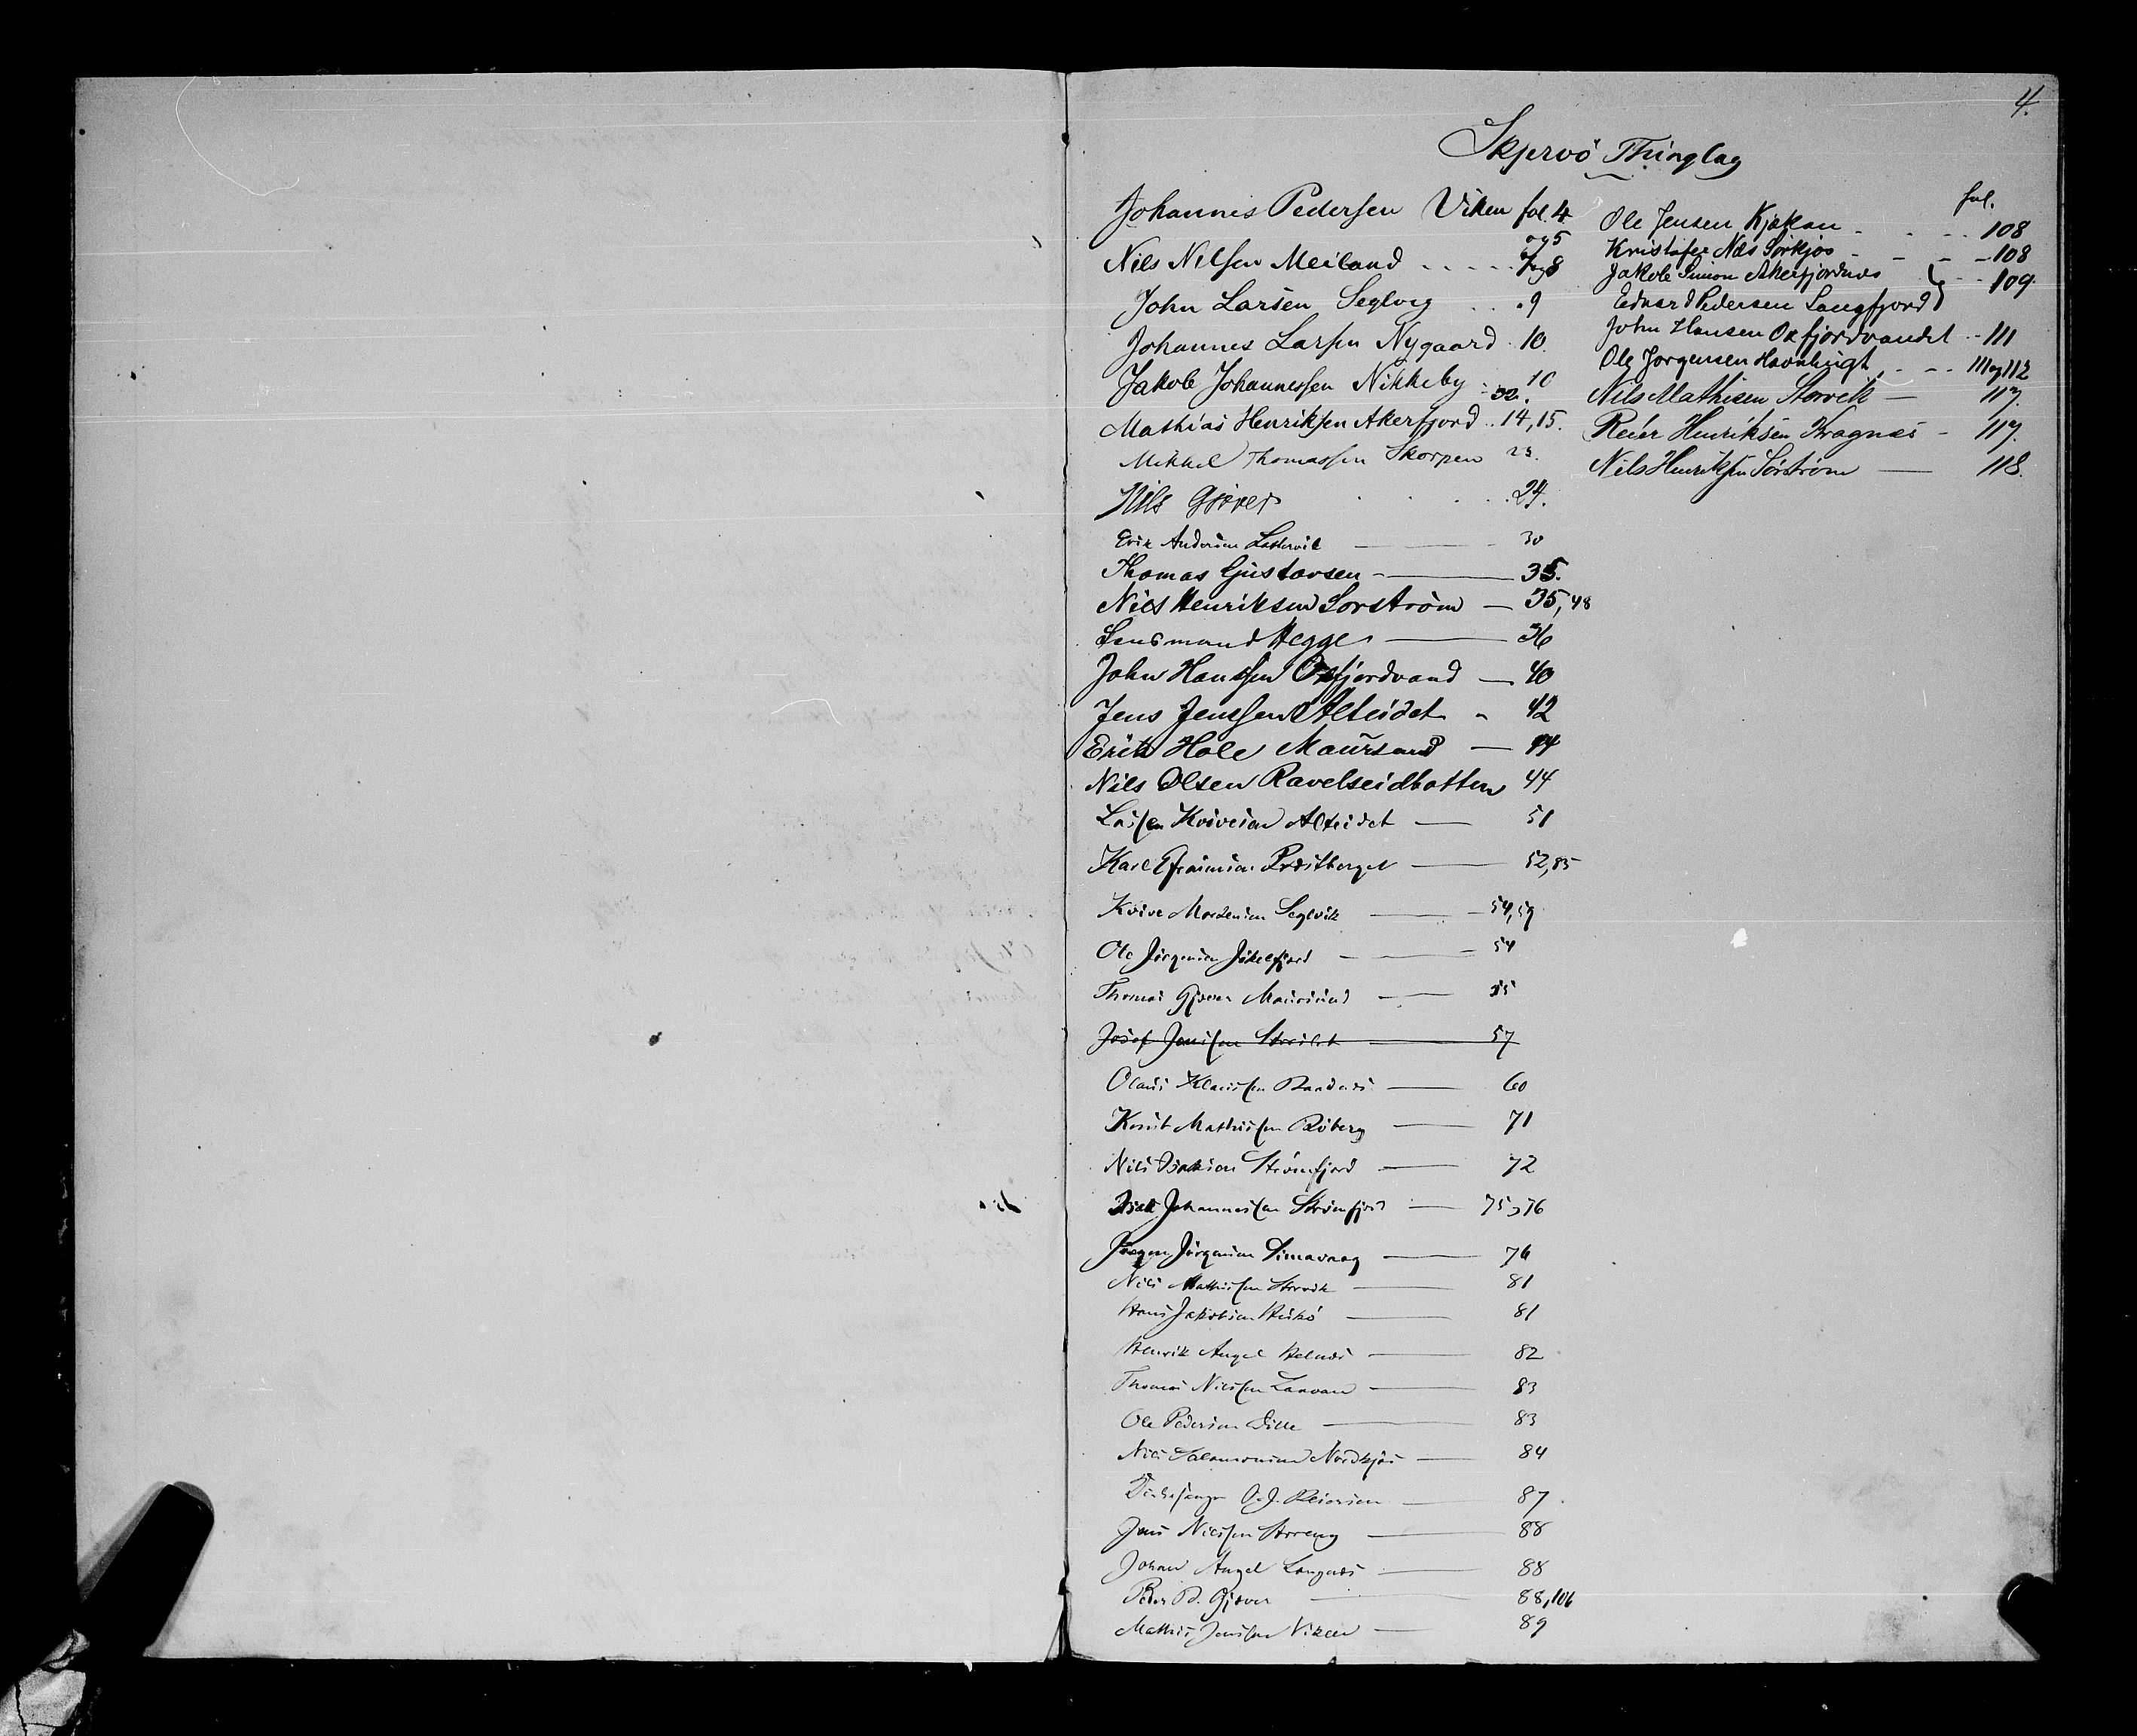 4.
Skjervö Thinglag
Johannes Pedersen Viken fol. 4
og 5
Nils Nilsen Meiland . . . . . 7 og 8
John Larsen Seglvig . . . 9
Johannes Larsen Nygaard . 10.
Jakob Johannessen Nikkeby . 10
32.
Mathias Henriksen Akerfjord . . 14, 15.
Mikkel Thomassen Skorpen 23.
Nils Gjæver . . . . . 24.
Erik Andersen Lathervik — 30
Thomas Gustavsen — 35.
Nils Henriksen Sorström — 35, 48
Lensmand Hegge — 36
John Hanssen Oxfjordvand — 40
Jens Jenssen Alteidet - 42
Erik Hole Maursund — 44
Nils Olsen Ravelseidbotten 44
Larsen Kvivesen Alteidet — 51
Karl Efraimsen Præstberget — 52, 85
Kvive Mortensen Seglvik — 54, 59
Ole Jörgensen Jökelfjord — 54
Thomas Gjæver Maursund — 55
Josef Jenssen Storeidet — 57
Olaus Klaussen Randnæs — 60
Knut Mathissen Röberg — 71
Nils Isaksen Strömfjord — 72
Isak Johannessen Strömfjord — 75, 76
Jörgen Jörgensen Simavaag — 76
Nils Mathissen Storvik — 81
Hans Jakobsen Hukö — 81
Henrik Angel Helnæs — 82
Thomas Nilssen Laavan — 83
Ole Pedersen Dille — 83
Nils Salamonsen Nordkjös — 84
Kirkesanger O. J. Reiersen — 87.
Jens Nilssen Storeng — 88
Johan Angel Langnæs — 88
Peder P. Gjæver — 88, 106
Mathis Jenssen Viken — 89
fol.
Ole Jensen Kjækan . . . . 108
Kristofer Nils Sörkjos - - - 108
Jakob Simon Akerfjordnæs } - - 109.
Edvard Pedersen Langfjord
John Hansen Oxfjordvandet - 111
Ole Jörgensen Havnbugt . - - 111 og 112
Nils Mathisen Storvik — 117.
Reier Henriksen Kragnæs - 117.
Nils Henriksen Sörström — 118.